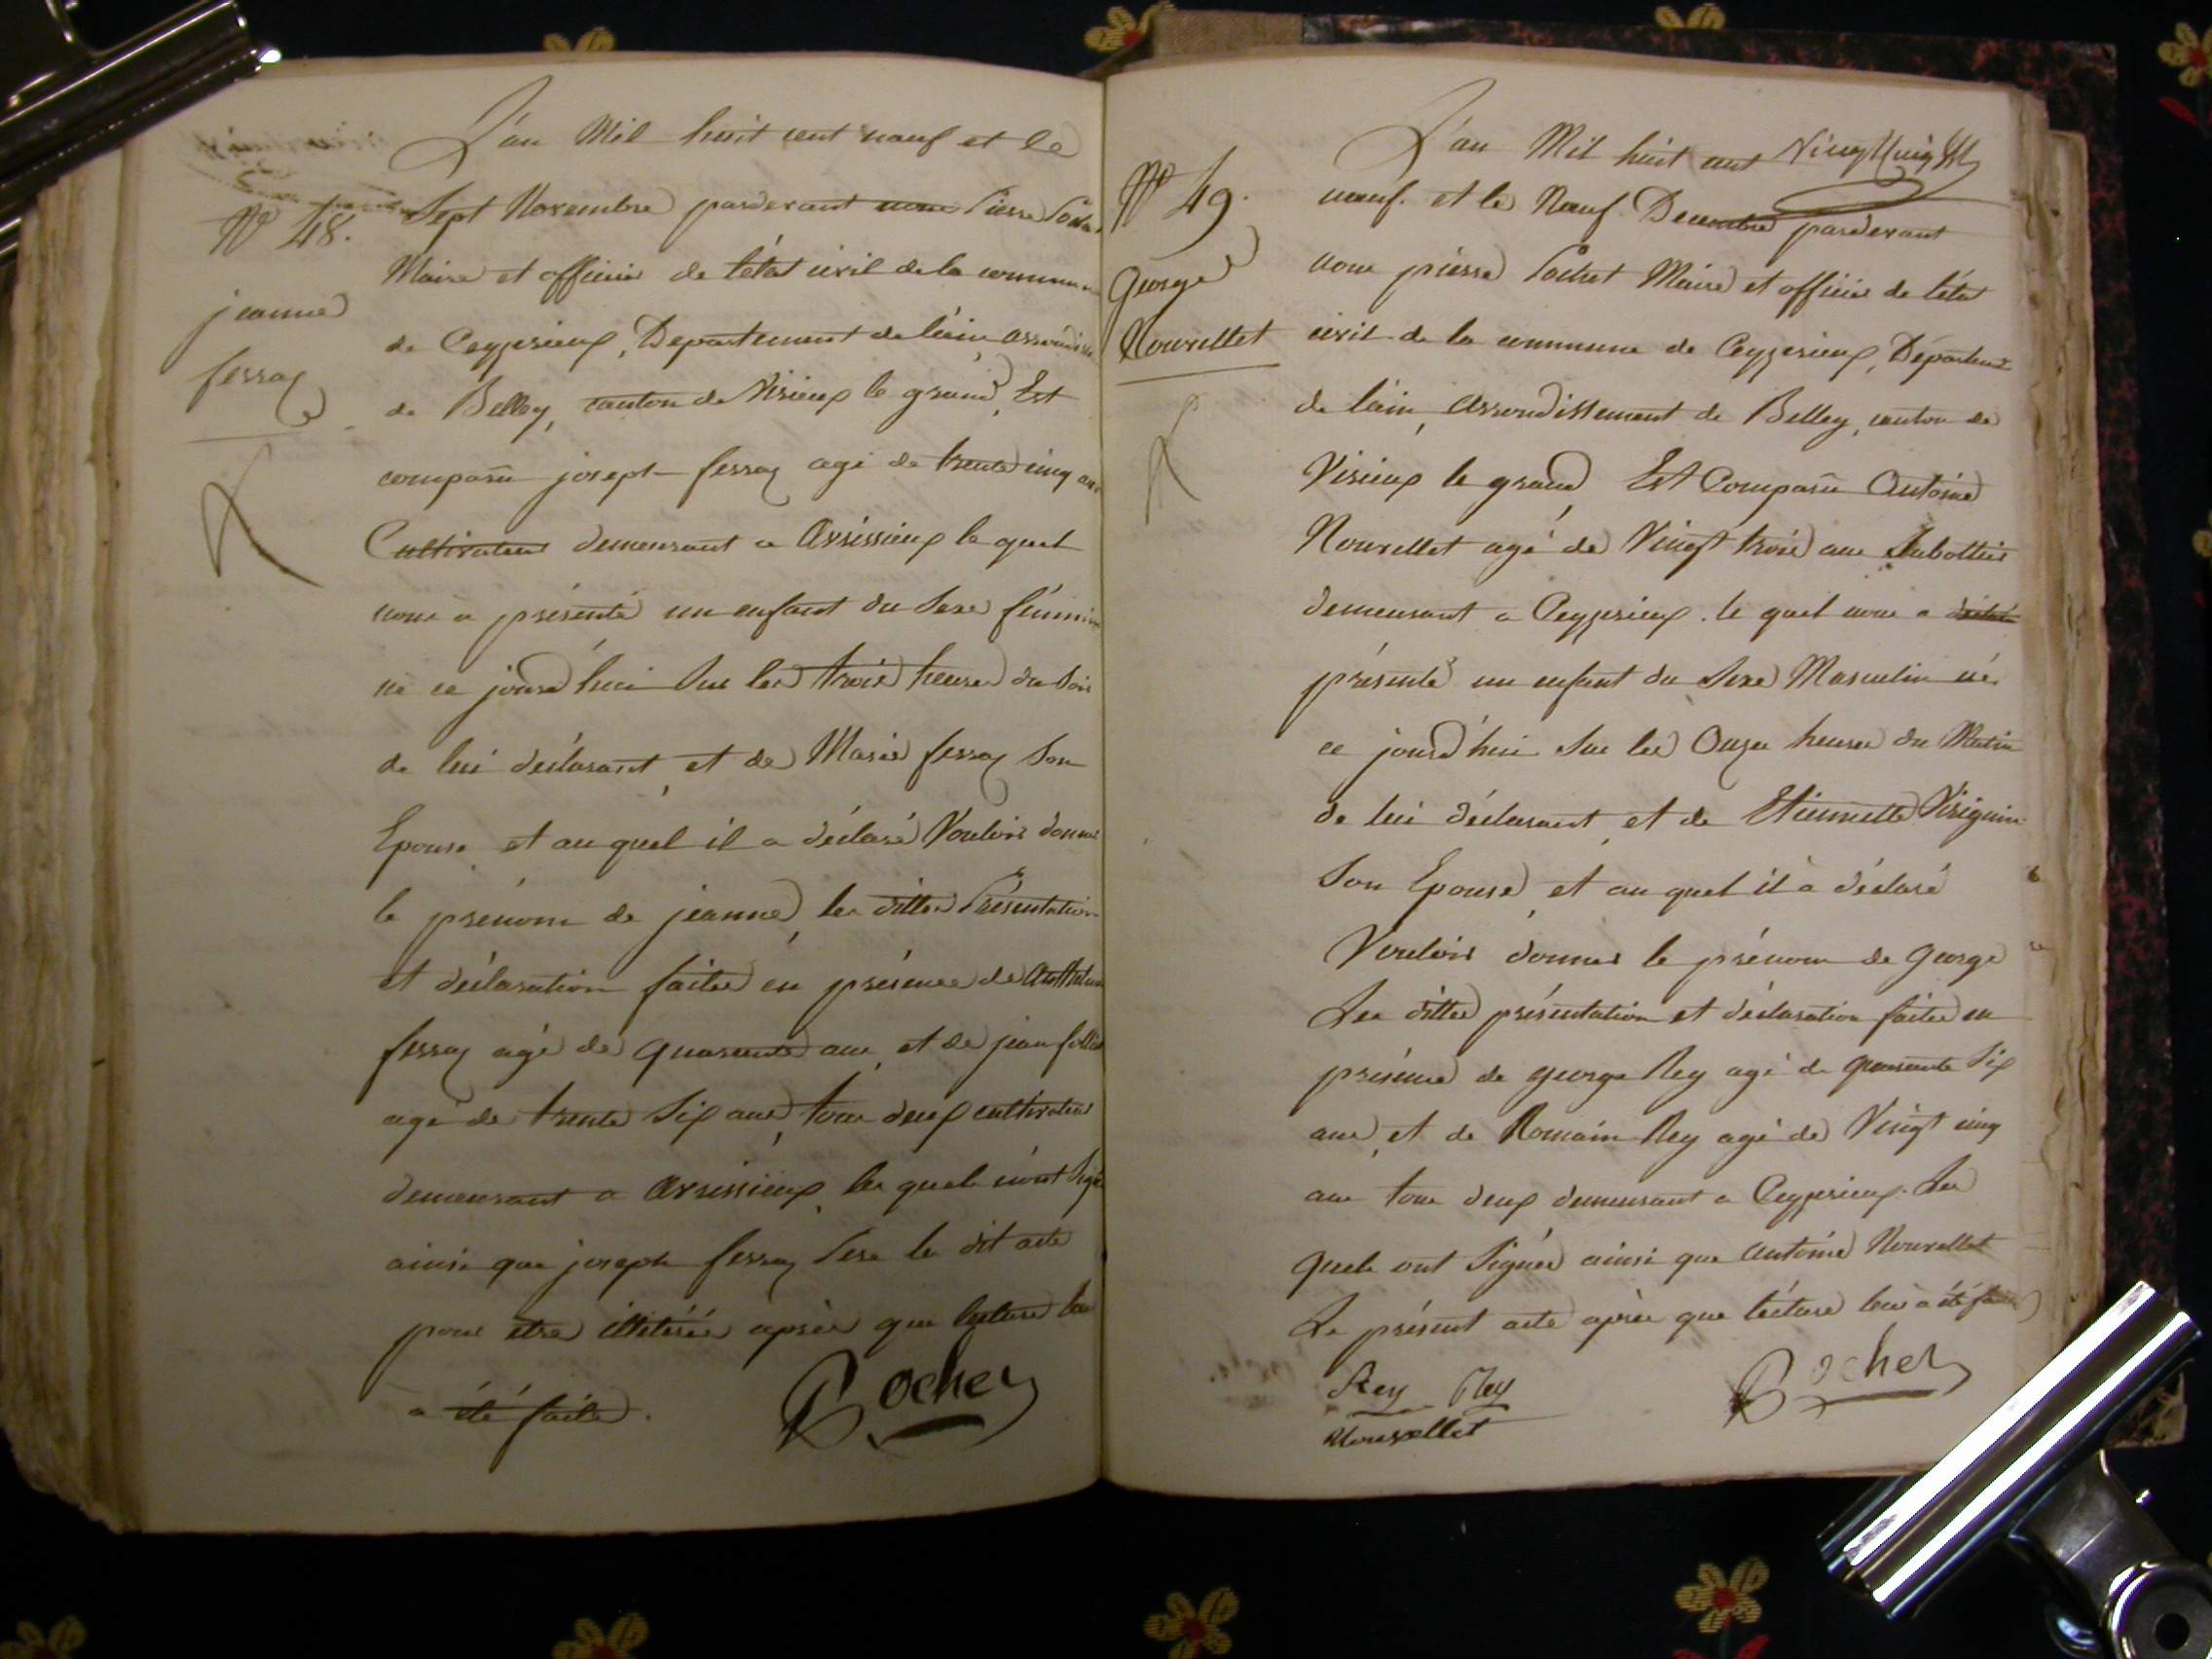 L'an Mil huit cent neuf et le
Sept Novembre pardevant nous Pierre
Maire et officier de l'état civil de la commune
de Ceyzerieux, Departement de l'ain
de Belley, canton de Virieux le grand, Est
comparu joseph ferraz agé de trente cinq ans
Cultivateur demeurant a Avrissieux le quel
nous à présenté un enfant du Sexe féminin
né ce jourd'hui Sur les trois heures du Soir
de lui déclarant, et de Marie ferraz Son
Epouse, et au quel il a déclaré Vouloir donner
le prénom de jeanne, les dittes Présentation
et déclaration faites en présence de
ferraz agé de quarante ans, et de jean
agé de trente Six ans, tous deux cultivateurs
demeurant a Avrissieux, les quels n'ont Signé
ainsi que joseph ferraz Pere le dit acte
pour etre illitérés après que lecture
a été faite.
Pochet
N° 48.
jeanne
ferraz
N° 49.
George
Nouvellet
L'an Mil huit cent
neuf. et le Neuf Decembre pardevant
nous pierre Pochet Maire et officier de l'état
civil de la commune de Ceyzerieux, Département
de l'ain, Arrondissement de Belley, canton de
Virieux le grand, Est Comparu Antoine
Nouvellet agé de Vingt trois ans Sabottier
demeurant a Ceyzerieux. le quel nous a
présenté un enfant du Sexe Masculin né
ce jourd'hui Sur les Onze heures du Matin
de lui déclarant, et de Etiennette Virignin
Son Epouse, et au quel il à déclaré
Vouloir donner le prénom de George
Les dittes présentation et déclaration faites en
présence de george Rey agé de quarante Six
ans, et de Romain Rey agé de Vingt cinq
ans tous deux demeurant a Ceyzerieux. Les
quels ont Signés ainsi que antoine Nouvellet
Le présent acte après que lécture leur à été faite
Rey Rey
Nouvellet
Pochet